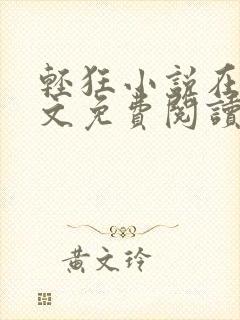 輕狂小說在
文免費閱讀
黃文玲